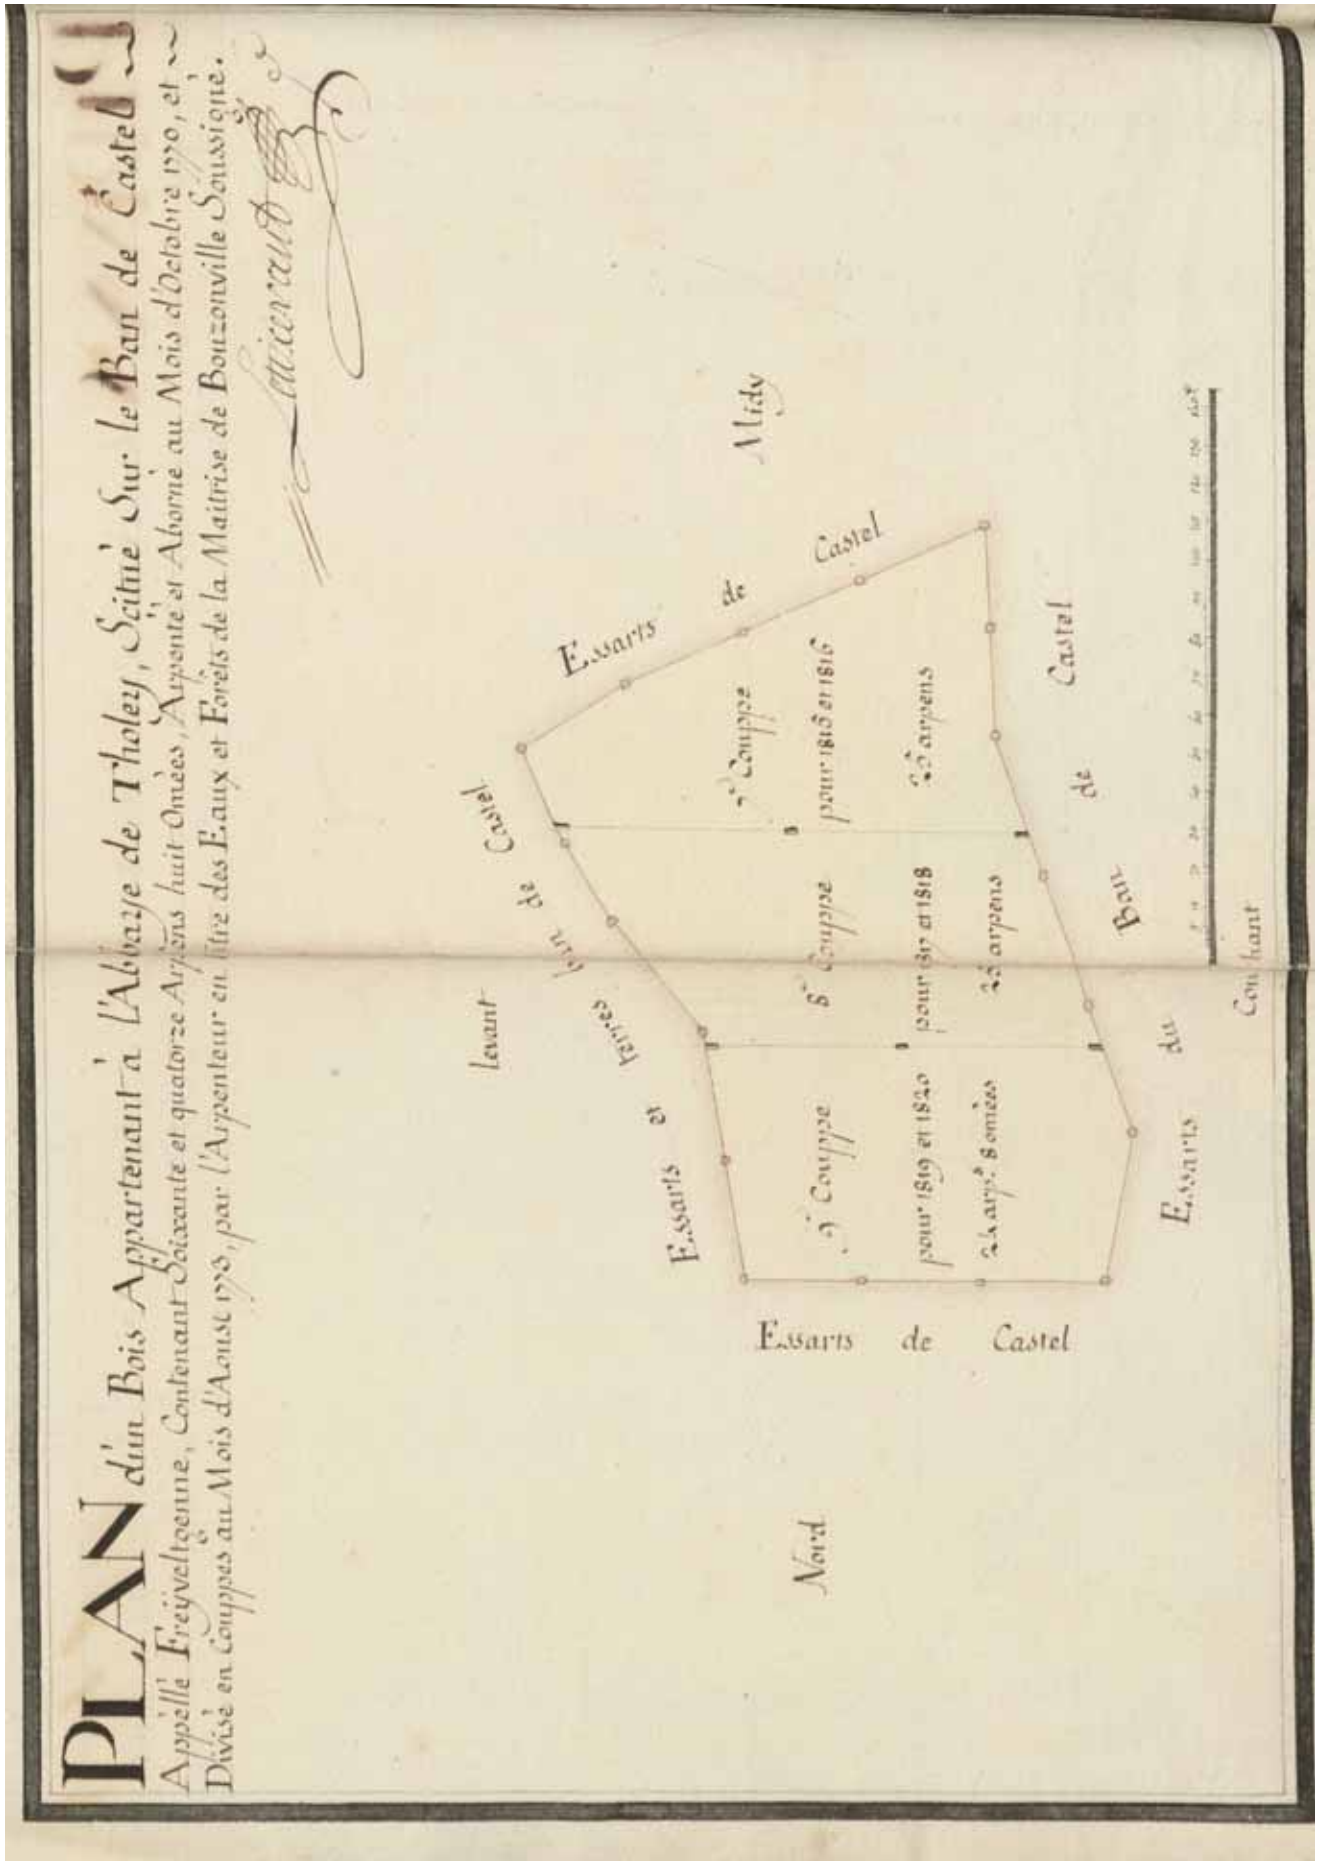 PLAN d'un Bois Appartenant à l'Abbaye de Tholey, Scitué Sur le Ban de Castel
Appéllé Freÿveltoenne, Contenant Soixante et quatorze Arpens huit Omées, Arpenté et Aborné au Mois d'Octobre 1770, et
Divisé en Couppes au Mois d'Aoust 1773, par l'Arpenteur en titre des Eaux et Forêts de la Maitrise de Bouzonville Soussigné.
levant
Essarts et terres ban de Castel
Essarts de Castel
Midy
9e Couppe
pour 1819 et 1820
24 arps. 8 omées
8e Couppe
pour 1817 et 1818
25 arpens
7e Couppe
pour 1815 et 1816
25 arpens
Nord
Essarts de Castel
Essarts du Ban de Castel
Couchant